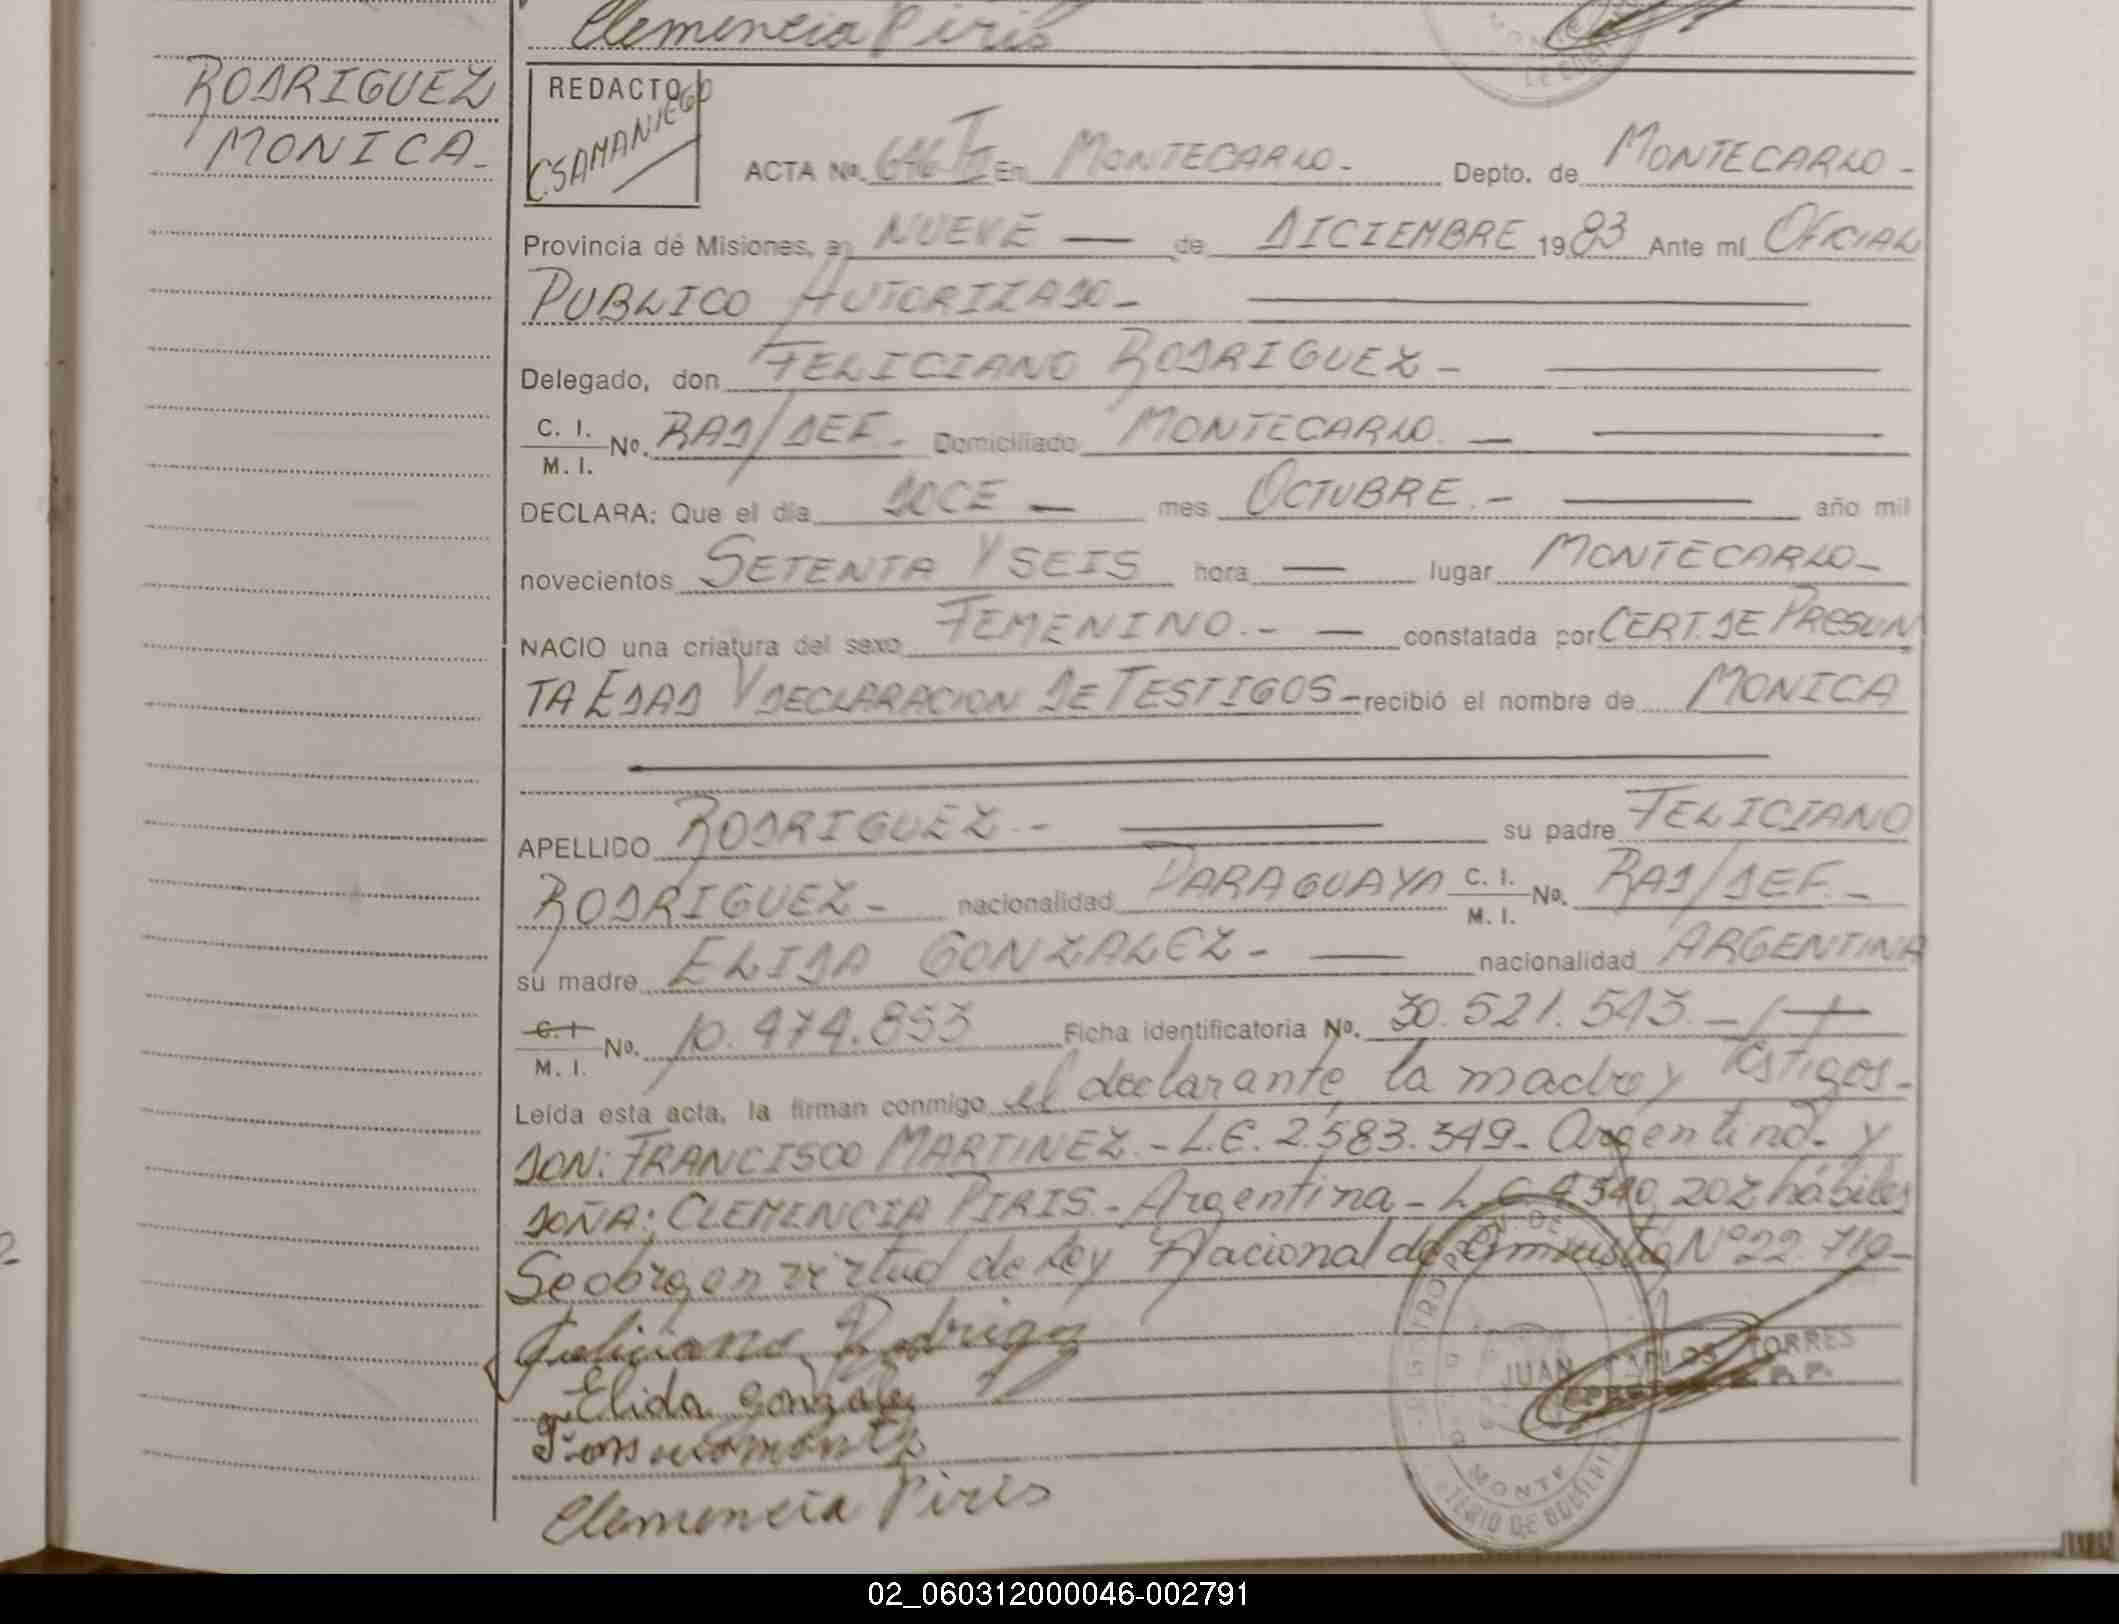 Clemencia Piris
RODRIGUEZ
MONICA-
REDACTO
C. SAMANIEGO
ACTA No. 646 TII En MONTECARLO- Depto. de MONTECARLO-
Provincia de Misiones, a NUEVE — de DICIEMBRE 1983 Ante mí OFICIAL
PUBLICO AUTORIZADO-
Delegado, don FELICIANO RODRIGUEZ-
C. I. / M. I. No. RAD/DEF. Domiciliado MONTECARLO. —
DECLARA: Que el día DOCE — mes OCTUBRE.- año mil
novecientos SETENTA Y SEIS hora — lugar MONTECARLO-
NACIO una criatura del sexo FEMENINO.- — constatada por CERT. DE PRESUN
TA EDAD Y DECLARACION DE TESTIGOS- recibió el nombre de MONICA
APELLIDO RODRIGUEZ.- su padre FELICIANO
RODRIGUEZ- nacionalidad PARAGUAYA C. I. / M. I. No. RAD/DEF.-
su madre ELIDA GONZALEZ- — nacionalidad ARGENTINA
C. I / M. I. No. 10.474.853 Ficha identificatoria No. 30.521.543.-
Leída esta acta, la firman conmigo el declarante, la madre y testigos-
DON: FRANCISCO MARTINEZ.- L.E. 2.583.349- Argentino- y
DOÑA: CLEMENCIA PIRIS.- Argentina- L.C. 4.540.202 hábiles
Se obra en virtud de Ley Nacional de Amnistia Nº 22.710-
Feliciano Rodriguez
Elida Gonzalez
Clemencia Piris
JUAN CARLOS TORRES
MONTE
02_060312000046-002791